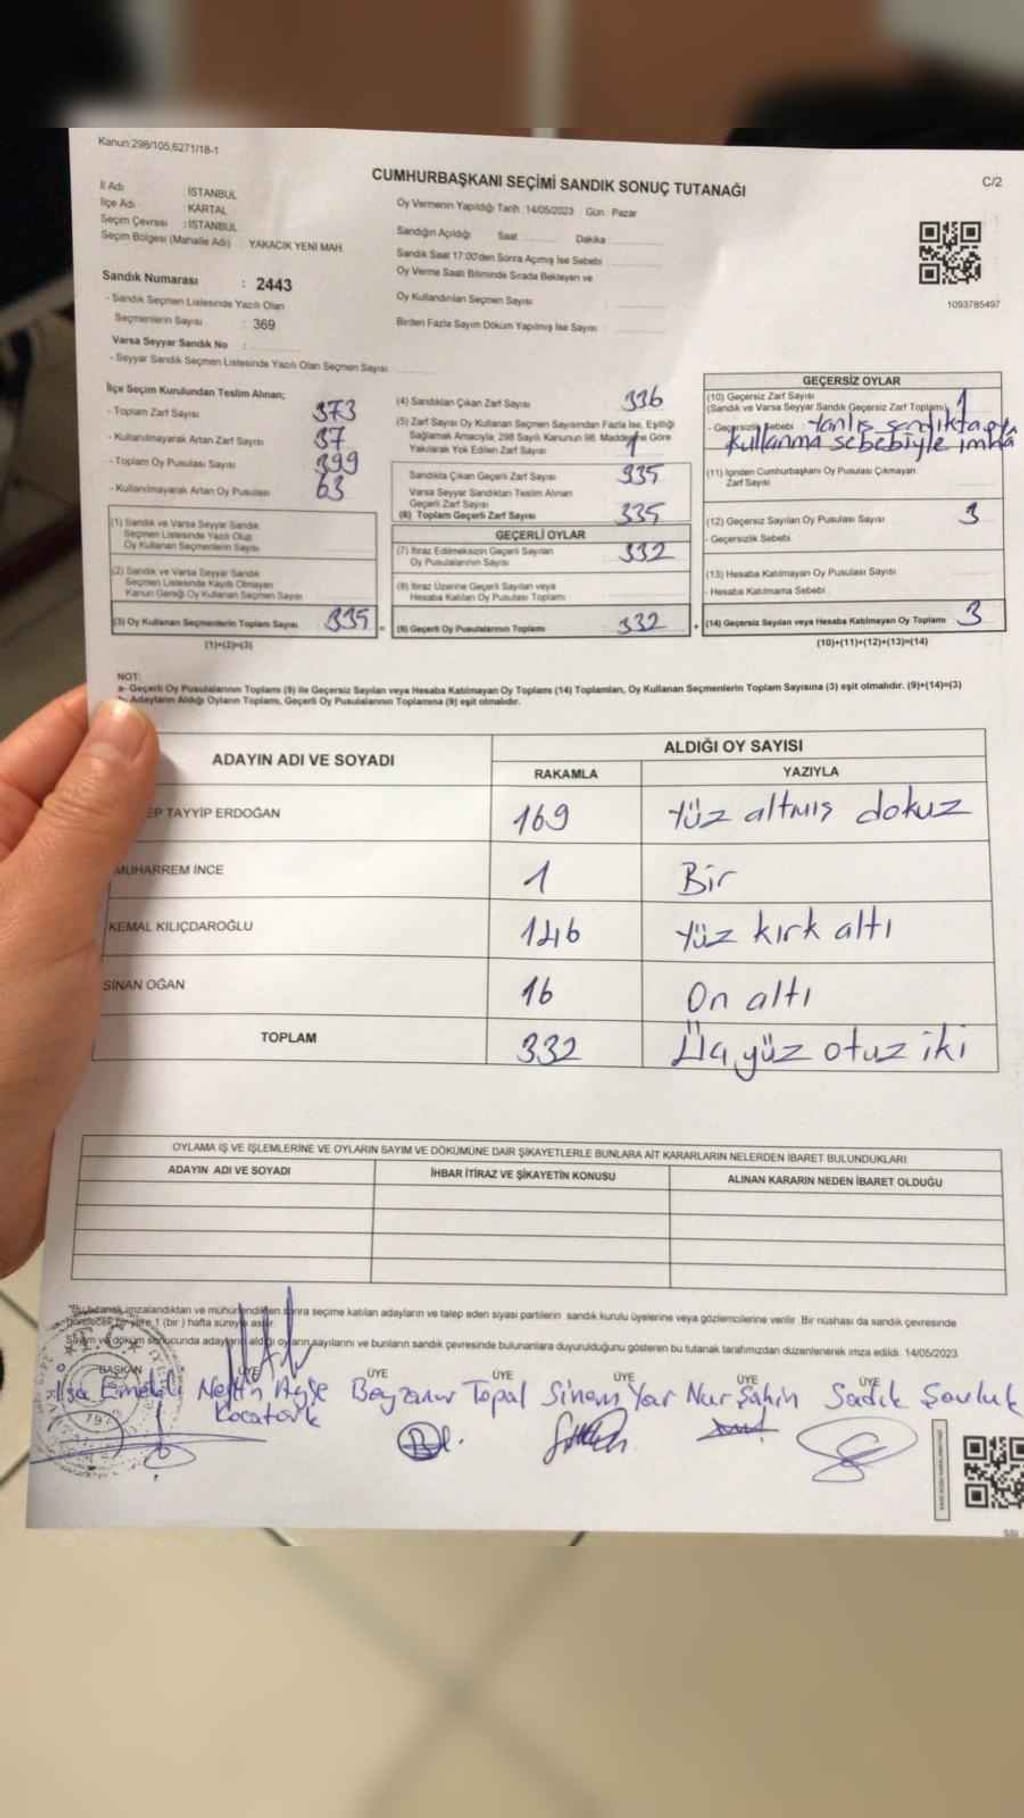 Kanun:298/105,6271/18-1
C/2
CUMHURBAŞKANI SEÇİMİ SANDIK SONUÇ TUTANAĞI
İl Adı : İSTANBUL
İlçe Adı : KARTAL
Seçim Çevresi : İSTANBUL
Seçim Bölgesi (Mahalle Adı) YAKACIK YENİ MAH.
Sandık Numarası : 2443
- Sandık Seçmen Listesinde Yazılı Olan
Seçmenlerin Sayısı : 369
Varsa Seyyar Sandık No :
- Seyyar Sandık Seçmen Listesinde Yazılı Olan Seçmen Sayısı
Oy Vermenin Yapıldığı Tarih :14/05/2023 Gün: Pazar
Sandığın Açıldığı Saat Dakika
Sandık Saat 17:00'den Sonra Açımış İse Sebebi
Oy Verme Saati Bitiminde Sırada Bekleyen ve
Oy Kullandırılan Seçmen Sayısı
Birden Fazla Sayım Döküm Yapılmış İse Sayısı
1093785497
İlçe Seçim Kurulundan Teslim Alınan;
- Toplam Zarf Sayısı 373
- Kullanılmayarak Artan Zarf Sayısı 37
- Toplam Oy Pusulası Sayısı 399
- Kullanılmayarak Artan Oy Pusulası 63
(1) Sandık ve Varsa Seyyar Sandık
Seçmen Listesinde Yazılı Olup
Oy Kullanan Seçmenlerin Sayısı
(2) Sandık ve Varsa Seyyar Sandık
Seçmen Listesinde Kayıtlı Olmayan
Kanun Gereği Oy Kullanan Seçmen Sayısı
(3) Oy Kullanan Seçmenlerin Toplam Sayısı 335
(1)+(2)=(3)
(4) Sandıktan Çıkan Zarf Sayısı 336
(5) Zarf Sayısı Oy Kullanan Seçmen Sayısından Fazla İse, Eşitliği
Sağlamak Amacıyla; 298 Sayılı Kanunun 98. Maddesine Göre
Yakılarak Yok Edilen Zarf Sayısı 1
Sandıkta Çıkan Geçerli Zarf Sayısı 335
Varsa Seyyar Sandıktan Teslim Alınan
Geçerli Zarf Sayısı
(6) Toplam Geçerli Zarf Sayısı 335
GEÇERLİ OYLAR
(7) İtiraz Edilmeksizin Geçerli Sayılan
Oy Pusulalarının Sayısı 332
(8) İtiraz Üzerine Geçerli Sayılan veya
Hesaba Katılan Oy Pusulası Toplamı
(9) Geçerli Oy Pusulalarının Toplamı 332
GEÇERSİZ OYLAR
(10) Geçersiz Zarf Sayısı
(Sandık ve Varsa Seyyar Sandık Geçersiz Zarf Toplamı) 1
- Geçersizlik Sebebi Yanlış sandıkta oy
kullanma sebebiyle imha
(11) İçinden Cumhurbaşkanı Oy Pusulası Çıkmayan
Zarf Sayısı
(12) Geçersiz Sayılan Oy Pusulası Sayısı 3
- Geçersizlik Sebebi
(13) Hesaba Katılmayan Oy Pusulası Sayısı
- Hesaba Katılmama Sebebi
(14) Geçersiz Sayılan veya Hesaba Katılmayan Oy Toplamı 3
(10)+(11)+(12)+(13)=(14)
NOT:
a- Geçerli Oy Pusulalarının Toplamı (9) ile Geçersiz Sayılan veya Hesaba Katılmayan Oy Toplamı (14) Toplamları, Oy Kullanan Seçmenlerin Toplam Sayısına (3) eşit olmalıdır. (9)+(14)=(3)
Adayların Aldığı Oyların Toplamı, Geçerli Oy Pusulalarının Toplamına (9) eşit olmalıdır.
ADAYIN ADI VE SOYADI
ALDIĞI OY SAYISI
RAKAMLA YAZIYLA
EP TAYYİP ERDOĞAN 169 Yüz altmış dokuz
MUHARREM İNCE 1 Bir
KEMAL KILIÇDAROĞLU 146 Yüz kırk altı
SİNAN OĞAN 16 On altı
TOPLAM 332 Üç yüz otuz iki
OYLAMA İŞ VE İŞLEMLERİNE VE OYLARIN SAYIM VE DÖKÜMÜNE DAİR ŞİKAYETLERLE BUNLARA AİT KARARLARIN NELERDEN İBARET BULUNDUKLARI
ADAYIN ADI VE SOYADI İHBAR İTİRAZ VE ŞİKAYETİN KONUSU ALINAN KARARIN NEDEN İBARET OLDUĞU
imzalandıktan ve mühürlendikten sonra seçime katılan adayların ve talep eden siyasi partilerin sandık kurulu üyelerine veya gözlemcilerine verilir. Bir nüshası da sandık çevresinde
1 (bir) hafta süreyle asılır.
Sayım ve döküm sonucunda adayların aldığı oyların sayılarını ve bunların sandık çevresinde bulunanlara duyurulduğunu gösteren bu tutanak tarafımızdan düzenlenerek imza edildi. 14/05/2023
BAŞKAN ÜYE ÜYE ÜYE ÜYE ÜYE ÜYE
Ayşe Beyzanur Topal Sinem Yar Nur Şahin Sadık
Kocatürk